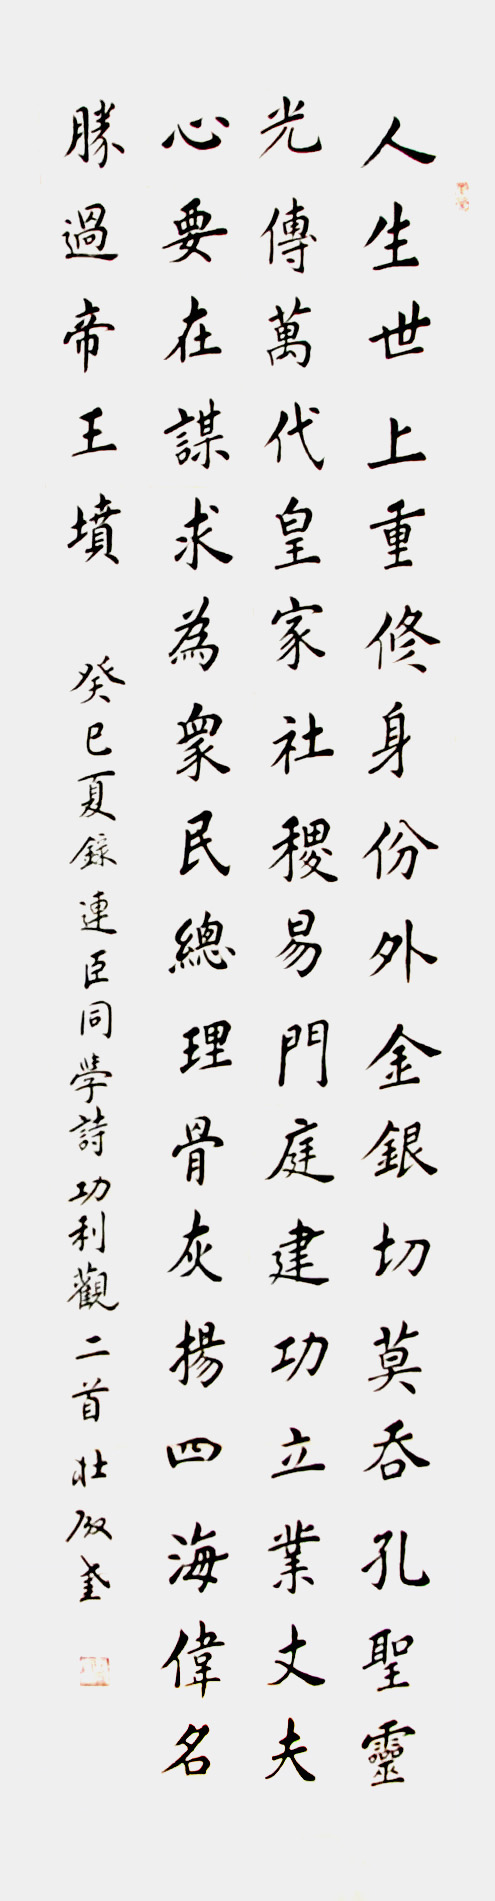 人生世上重修身份外金銀切莫吞孔聖靈
光傳萬代皇家社稷易門庭建功立業丈夫
心要在謀求為眾民總理骨灰揚四海偉名
勝過帝王墳
癸巳夏錄連臣同學詩功利觀二首壯